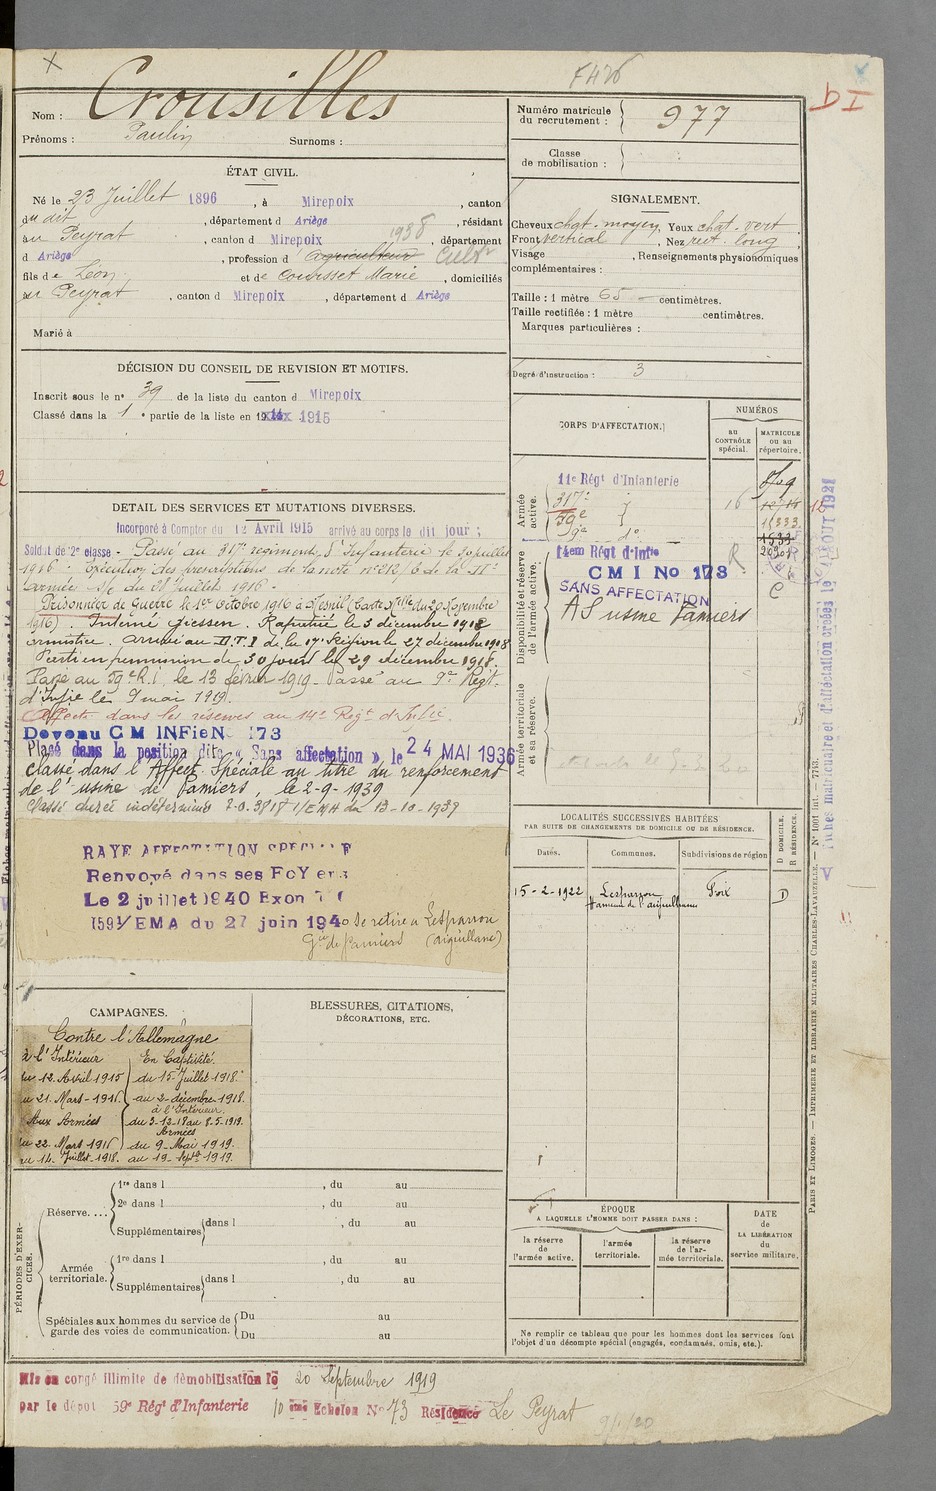 F476
Nom : Crousilles
Prénoms : Paulin Surnoms :
ÉTAT CIVIL.
Né le 23 Juillet 1896, à Mirepoix, canton
du dit, département d Ariège, résidant
au Peyrat, canton d Mirepoix 1938, département
d Ariège, profession d agriculteur Cultr
fils de Léon et de Courisset Marie, domiciliés
au Peyrat, canton d Mirepoix, département d Ariège
Marié à
DÉCISION DU CONSEIL DE REVISION ET MOTIFS.
Inscrit sous le n° 39 de la liste du canton d Mirepoix
Classé dans la 1e partie de la liste en 1915
DETAIL DES SERVICES ET MUTATIONS DIVERSES.
Incorporé à Compter du 12 Avril 1915 arrivé au corps le dit jour ;
Soldat de 2e classe - Passé au 317e régiment d'Infanterie le 30 juillet
1916 - exécution des prescriptions de la note n° 212/6 de la IIe
armée S/c du 28 juillet 1916.
Prisonnier de Guerre le 1er octobre 1916 à Mesnil (Carte Nelle du 29 Novembre
1916). Interné Giessen. Rapatrié le 3 décembre 1918
armistice. arrivé au D.T.I de la 17e Région le 27 décembre 1918
Parti en permission de 30 jours le 29 décembre 1918.
Passé au 59e R.I. le 13 février 1919 - Passé au 9e Régt.
d'Infie le 9 mai 1919.
Affecté dans les réserves au 14e Régt d'Infie.
Devenu C M INFie No 173
Placé dans la position dite « Sans affectation » le 24 MAI 1936
Classé dans l'Affect. Spéciale au titre du renforcement
de l'usine de Pamiers, le 2-9-1939
Classé durée indéterminée D.O. 3818 1/EMA du 13-10-1939
RAYE AFFECTATION SPECIALE
Renvoyé dans ses FoYers
Le 2 juillet 1940
1591/EMA du 27 juin 1940 Se retire à Lesparrou
Gie de Pamiers (Aiguillane)
CAMPAGNES.
Contre l'Allemagne
à l'Intérieur
du 12 Avril 1915
au 21 Mars - 1916
Aux Armées
du 22 Mars 1916
au 14 Juillet - 1918.
En Captivité.
du 15 Juillet 1918.
au 2 décembre 1918.
à l'Intérieur.
du 3-12-18 au 8.5-1919.
Armées
du 9 - Mai 1919.
au 19 - Septe 1919.
BLESSURES, CITATIONS,
DÉCORATIONS, ETC.
PÉRIODES D'EXERCICES.
Réserve....
1re dans l , du au
2e dans l , du au
Supplémentaires dans l , du au
Armée territoriale.
1re dans l , du au
Supplémentaires dans l , du au
Spéciales aux hommes du service de
garde des voies de communication.
Du au
Du au
Mis en congé illimité de démobilisation le 20 Septembre 1919
par le dépôt 59e Régt d'Infanterie 10 ème Echelon No 73 Résidence Le Peyrat
Numéro matricule
du recrutement : 977
Classe
de mobilisation :
SIGNALEMENT.
Cheveux chat. moyen, Yeux chat. vert
Front vertical, Nez rect. long
Visage , Renseignements physionomiques
complémentaires :
Taille : 1 mètre 65 centimètres.
Taille rectifiée : 1 mètre centimètres.
Marques particulières :
Degré d'instruction : 3
CORPS D'AFFECTATION.
NUMÉROS
au CONTRÔLE spécial.
MATRICULE ou au répertoire.
Armée active.
11e Régt d'Infanterie
317e
59e
9e do
Disponibilité et réserve de l'armée active.
14em Régt d'Infie
C M I No 173
SANS AFFECTATION
AS usine Pamiers
Armée territoriale et sa réserve.
LOCALITÉS SUCCESSIVES HABITÉES
PAR SUITE DE CHANGEMENTS DE DOMICILE OU DE RÉSIDENCE.
Dates. Communes. Subdivisions de région
D DOMICILE.
R RÉSIDENCE.
15-2-1922 Lesparrou Foix D
ÉPOQUE
A LAQUELLE L'HOMME DOIT PASSER DANS :
la réserve de l'armée active.
l'armée territoriale.
la réserve de l'armée territoriale.
DATE
de
LA LIBÉRATION
du
service militaire.
Ne remplir ce tableau que pour les hommes dont les services font
l'objet d'un décompte spécial (engagés, condamnés, omis, etc.).
PARIS ET LIMOGES. — IMPRIMERIE ET LIBRAIRIE MILITAIRES CHARLES-LAVAUZELLE. — N° 1001 int. — 7743.
Fiches matriculaire et d'affectation créées le AOUT 1921